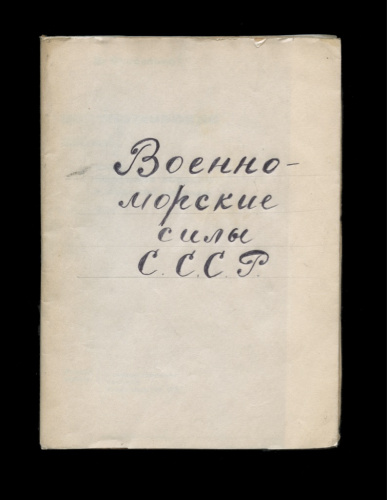 Военно-
морские
силы
С.С.С.Р.